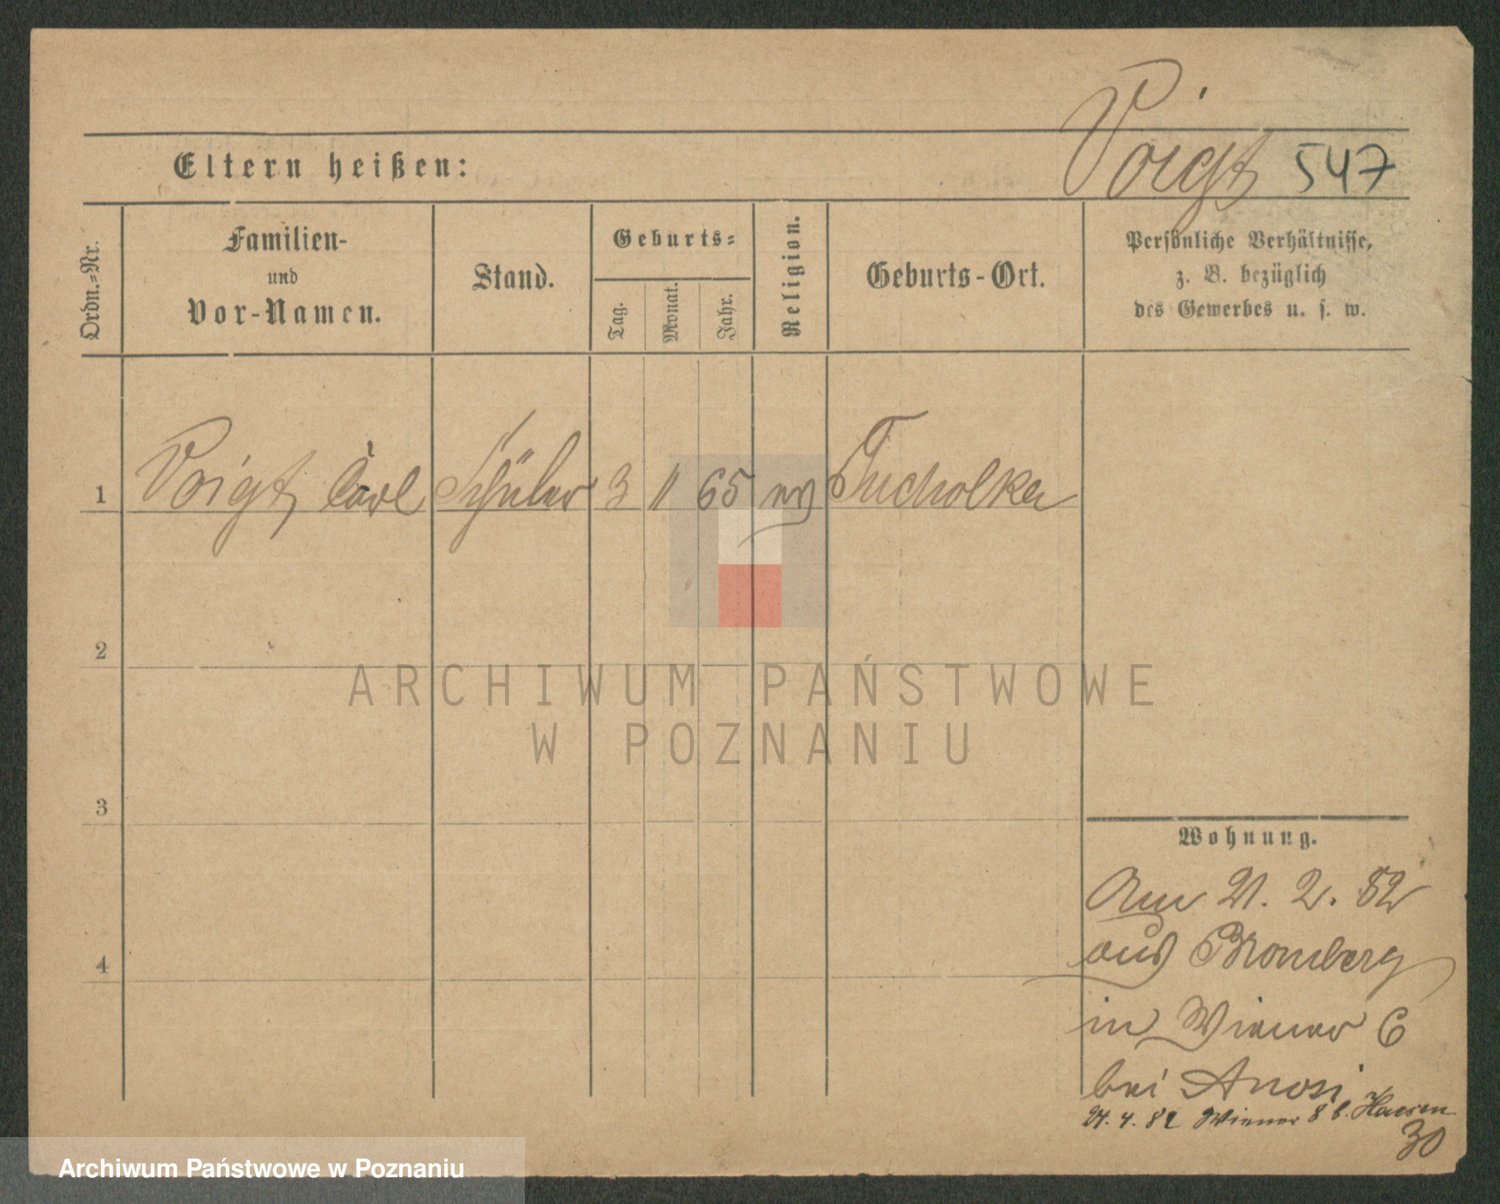 Voigt 547
Eltern heißen:
Ordn.-Nr.
Familien-
und
Vor-Namen.
Stand.
Geburts-
Tag.
Monat.
Jahr.
Religion.
Geburts-Ort.
Persönliche Verhältnisse,
z. B. bezüglich
des Gewerbes u. s. w.
1 Voigt, Carl Schüler 3 11 65 ev Tucholka
2
3
4
Wohnung.
Am 21. 2. 82
aus Bromberg
in Wiener 6
bei
4. 82 Wiener 8 b.
30
ARCHIWUM PAŃSTWOWE
W POZNANIU
Archiwum Państwowe w Poznaniu